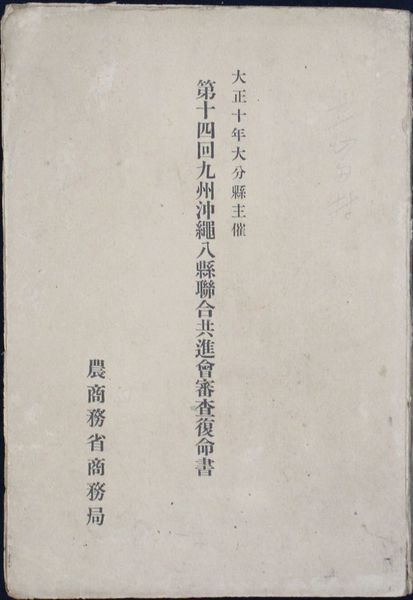 大正十年大分縣主催
第十四回九州沖繩八縣聯合共進會審査復命書
農商務省商務局